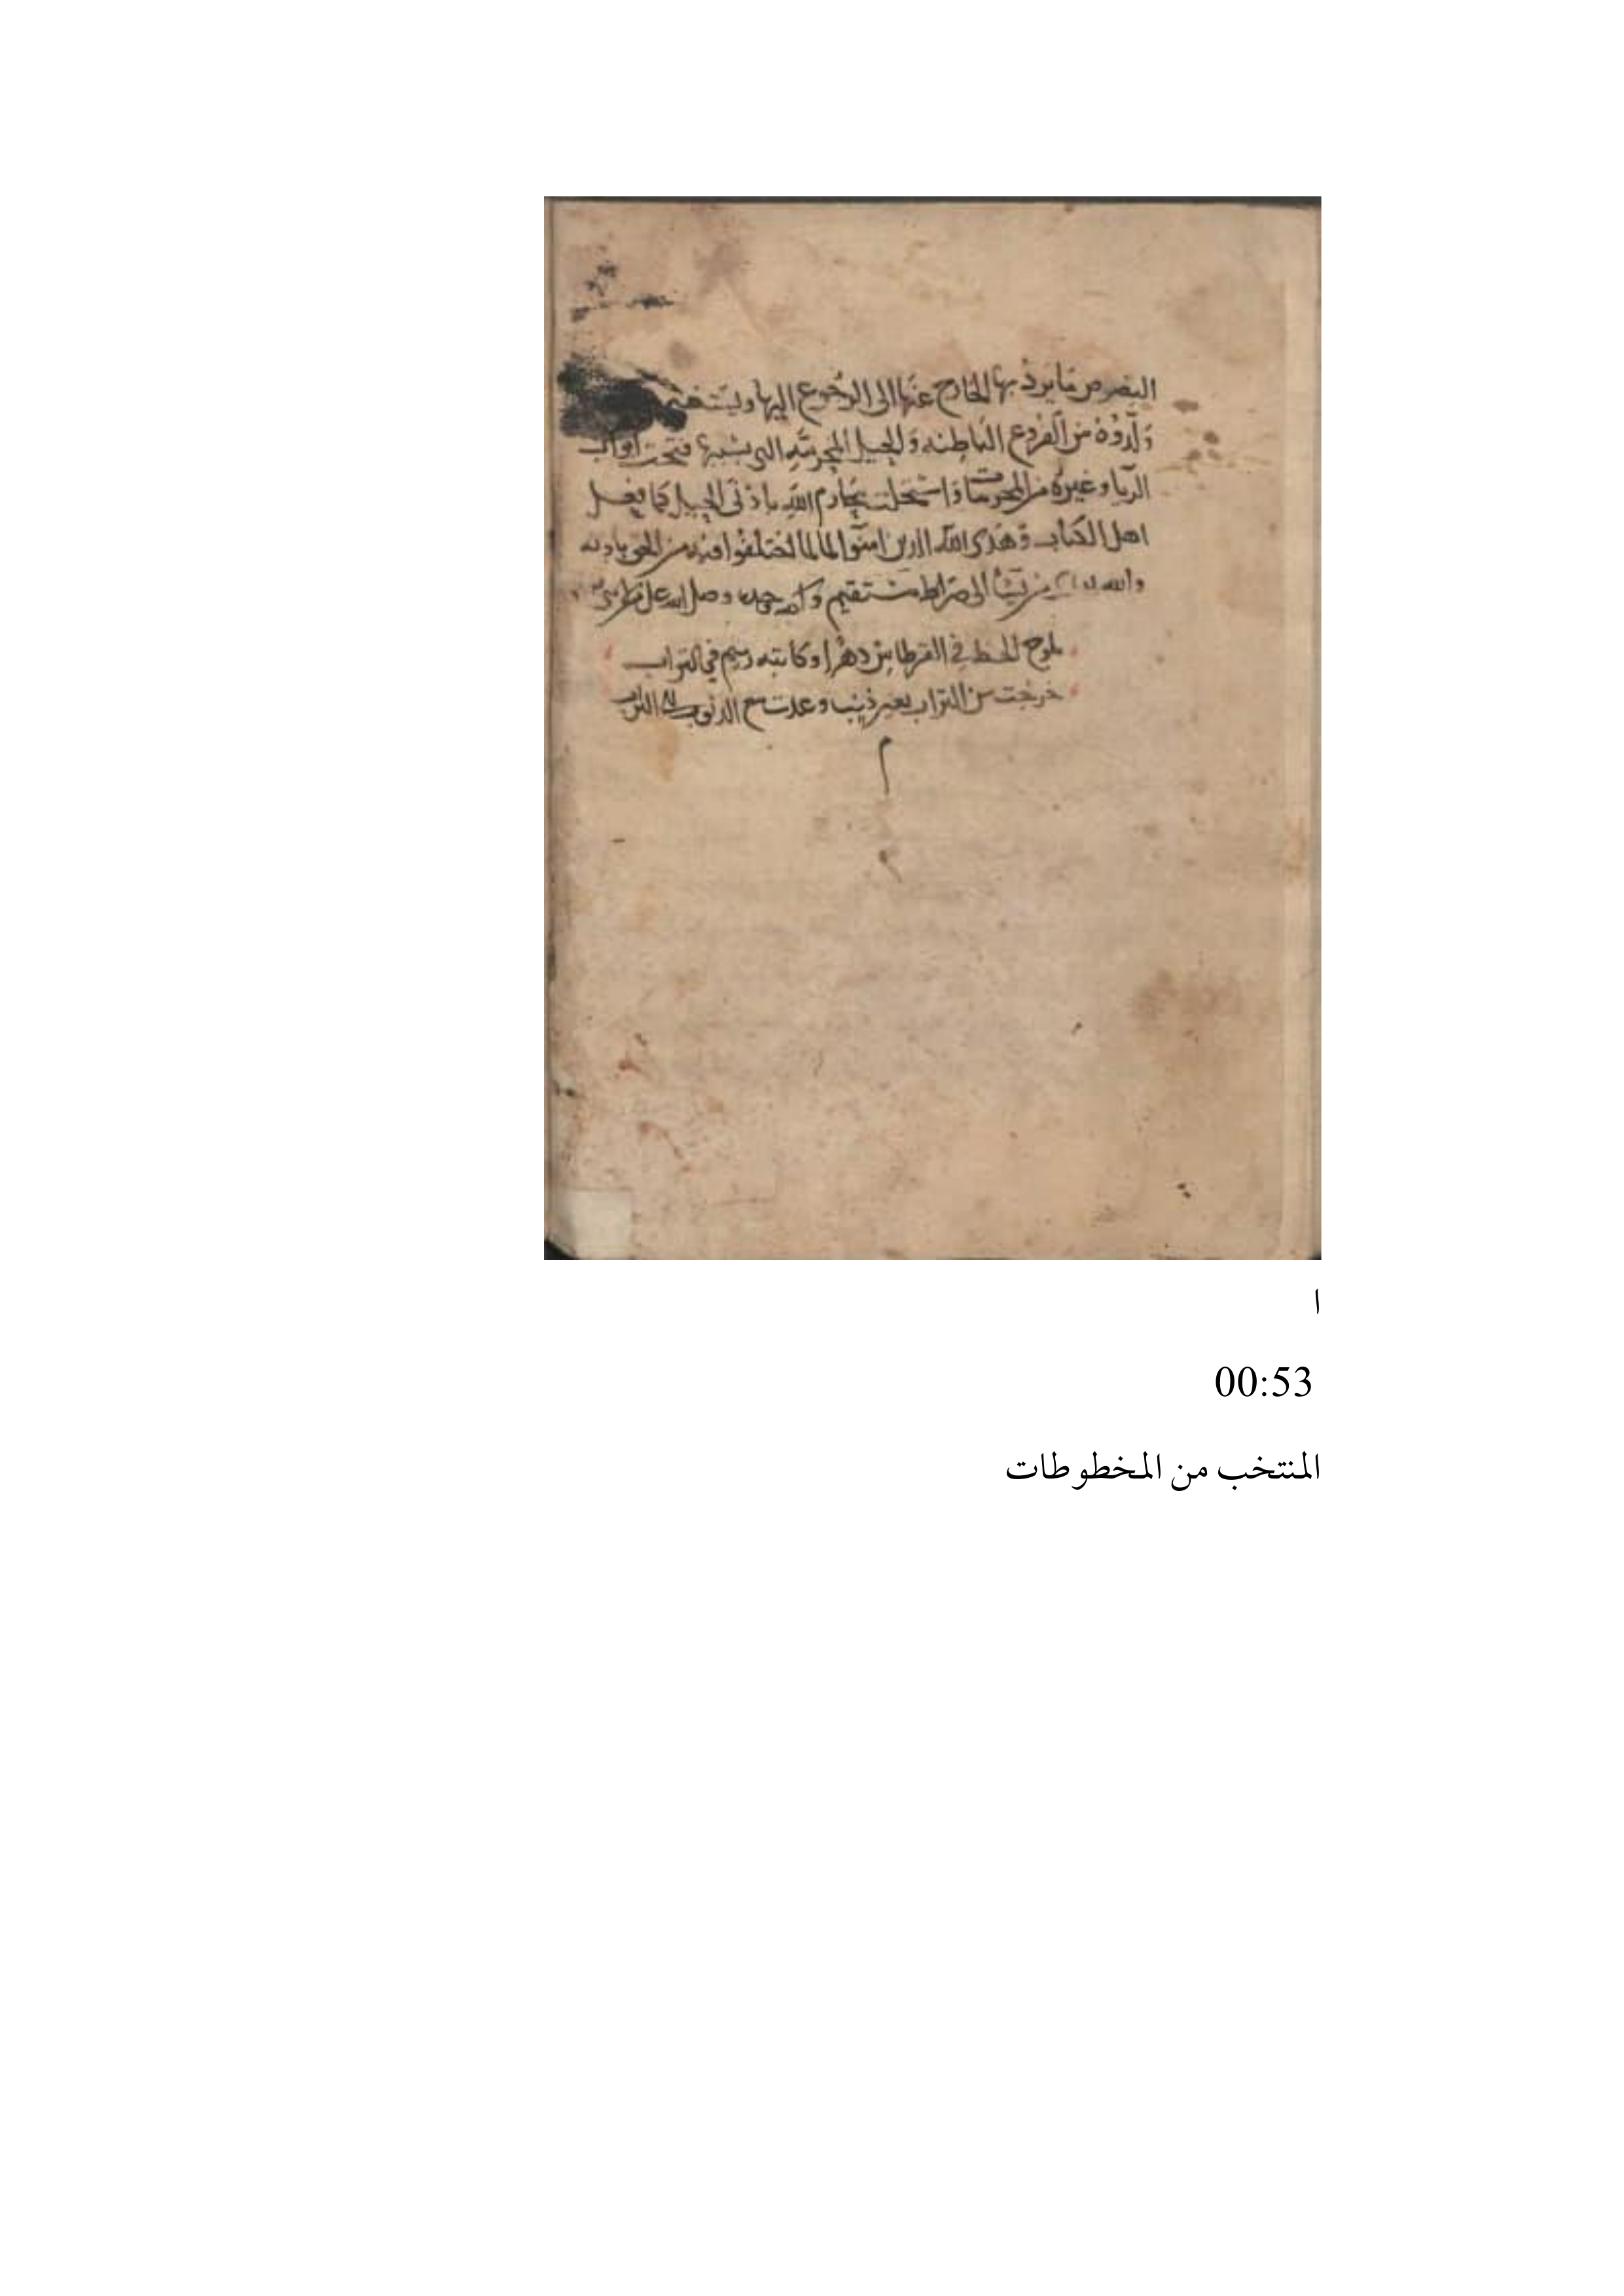 النصوص ما يرد بها الخارج عنها الى الرجوع اليها
ولدوه من الفروع الباطنه والحيل التي بسببها فتحت ابواب
الربا وغيره من المحرمات واستحلت محارم الله بادنى الحيل كما فعل
اهل الكتاب وهدى الله الذين امنوا لما اختلفوا فيه من الحق باذنه
والله من يشأ الى صراط مستقيم وصلى الله على
يلوح الخط في القرطاس دهرا وكاتبه رميم في التراب
خرجت من التراب بغير ذنب وعدت مع الذنوب الى التراب
م
ا
00:53
المنتخب من المخطوطات